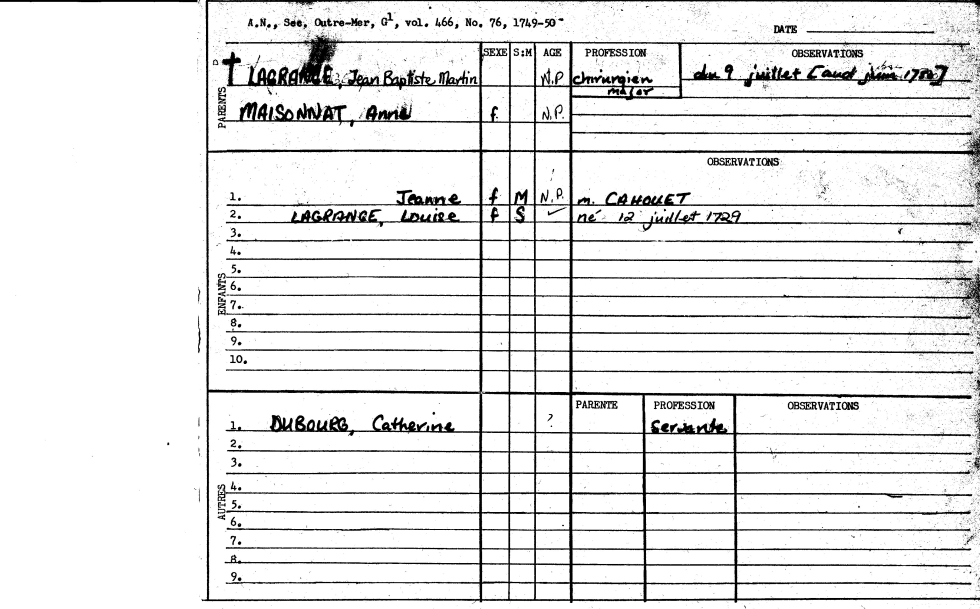 A.N., See, Outre-Mer, G1, vol. 466, No. 76, 1749-50
DATE
SEXE S:M AGE PROFESSION OBSERVATIONS
D
† LAGRANGE, Jean Baptiste Martin N.P chirurgien major
du 9 juillet
MAISONNAT, Anne f. N.P.
PARENTS
OBSERVATIONS
1. Jeanne f M N.P. m. CAHOUET
2. LAGRANGE, Louise f S ✓ né 12 juillet 1729
3.
4.
5.
6.
7.
8.
9.
10.
ENFANTS
PARENTE PROFESSION OBSERVATIONS
1. DUBOURG, Catherine ? Servante
2.
3.
4.
5.
6.
7.
8.
9.
AUTRES